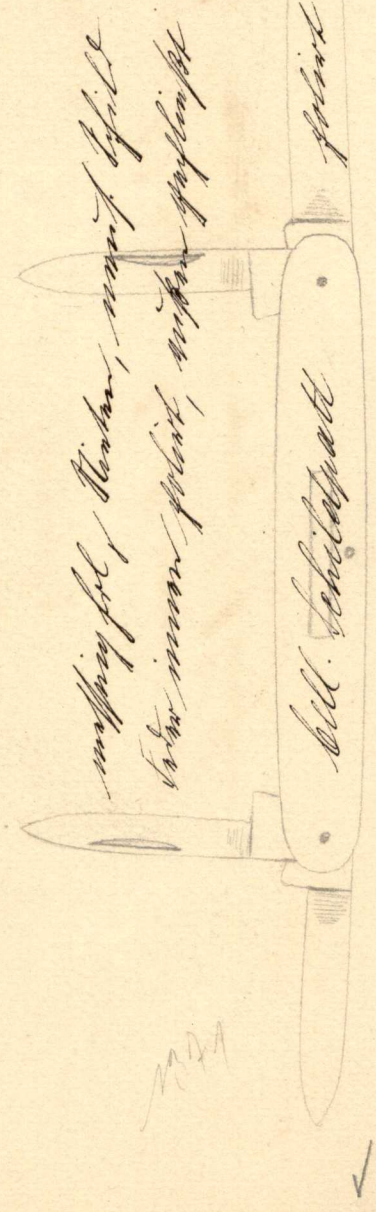 messing pol, Nieten, neus. Schild
Feder innen polirt, außen geschließt
Cell. Schildpatt
polirt